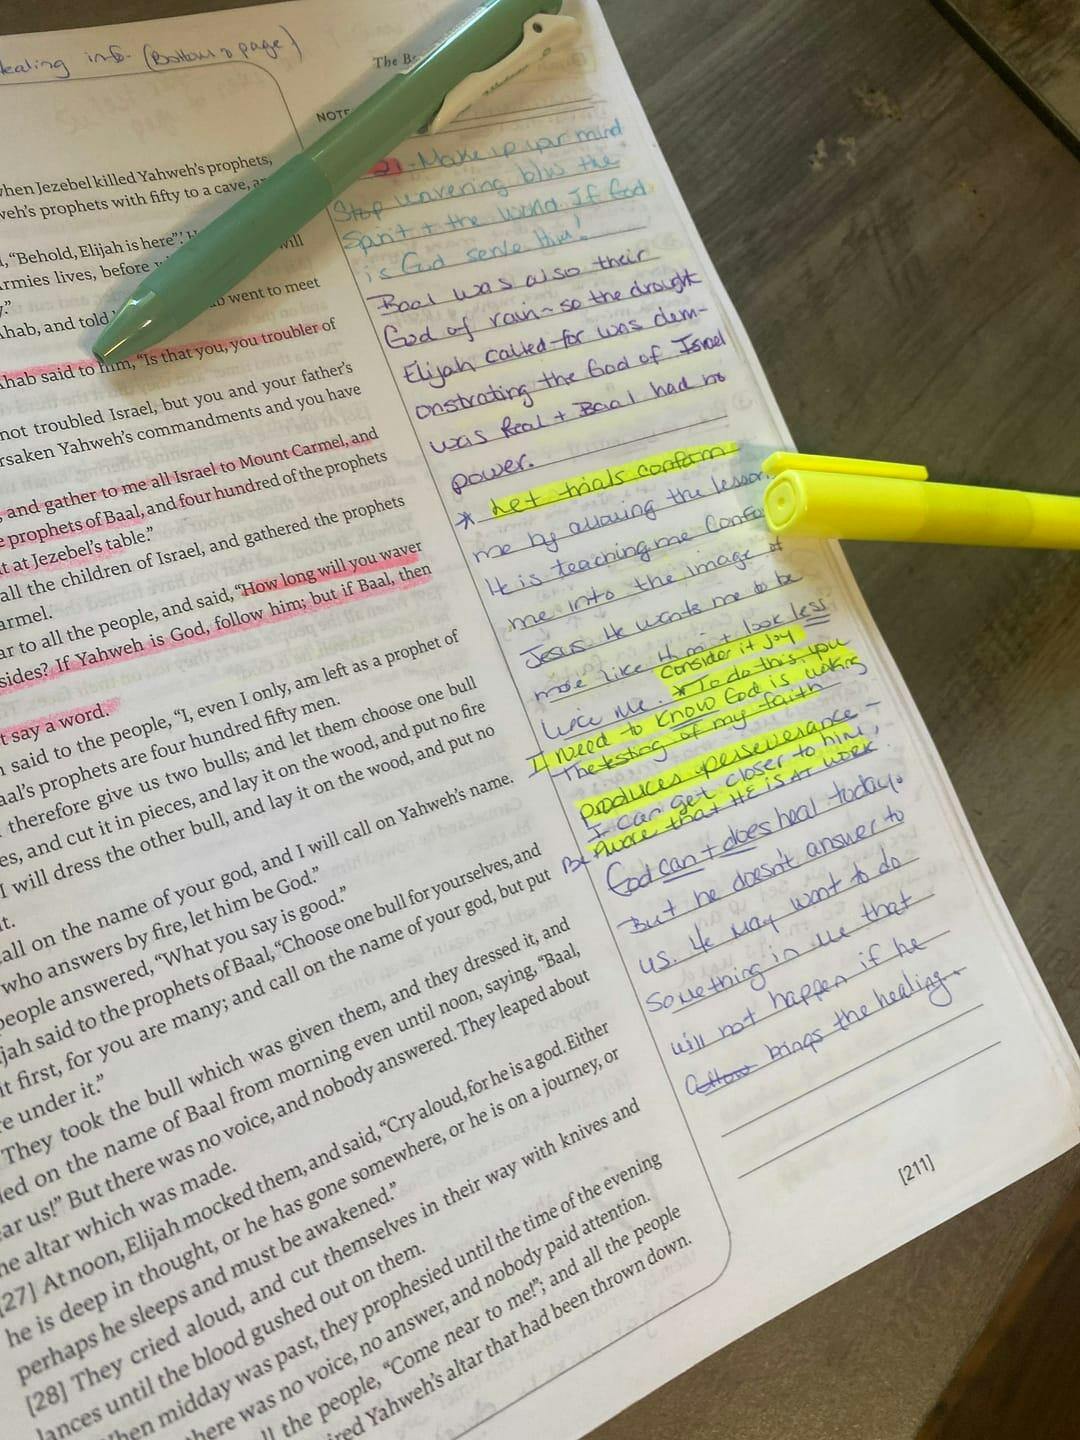 ealing info- (Bottom of page)
The B
NOTE
when Jezebel killed Yahweh's prophets,
weh's prophets with fifty to a cave, a
, "Behold, Elijah is here".'
will
rmies lives, before
y."
went to meet
Ahab, and told
Ahab said to him, "Is that you, you troubler of
not troubled Israel, but you and your father's
rsaken Yahweh's commandments and you have
, and gather to me all Israel to Mount Carmel, and
e prophets of Baal, and four hundred of the prophets
t at Jezebel's table."
all the children of Israel, and gathered the prophets
armel.
ar to all the people, and said, "How long will you waver
sides? If Yahweh is God, follow him; but if Baal, then
t say a word.
h said to the people, "I, even I only, am left as a prophet of
aal's prophets are four hundred fifty men.
therefore give us two bulls; and let them choose one bull
es, and cut it in pieces, and lay it on the wood, and put no fire
I will dress the other bull, and lay it on the wood, and put no
it.
call on the name of your god, and I will call on Yahweh's name.
who answers by fire, let him be God."
people answered, "What you say is good."
jah said to the prophets of Baal, "Choose one bull for yourselves, and
it first, for you are many; and call on the name of your god, but put
re under it."
They took the bull which was given them, and they dressed it, and
led on the name of Baal from morning even until noon, saying, "Baal,
ear us!" But there was no voice, and nobody answered. They leaped about
he altar which was made.
[27] At noon, Elijah mocked them, and said, "Cry aloud, for he is a god. Either
he is deep in thought, or he has gone somewhere, or he is on a journey, or
perhaps he sleeps and must be awakened."
[28] They cried aloud, and cut themselves in their way with knives and
lances until the blood gushed out on them.
hen midday was past, they prophesied until the time of the evening
there was no voice, no answer, and nobody paid attention.
ll the people, "Come near to me!"; and all the people
ired Yahweh's altar that had been thrown down.
21 - Make up your mind
Stop wavering b/w the
Spirit + the world. If God
is God serve Him!
Baal was also their
God of rain - so the drought
Elijah called for was dem-
onstrating the God of Israel
was Real + Baal had no
power.
* Let trials conform
me by allowing the lesson
He is teaching me confo
me into the image of
Jesus. He wants me to be
more like Him + look less
like me.
Consider it Joy
* To do this, you
I need to know God is working
The testing of my faith
produces perseverance -
I can get closer to him,
Be Aware that HE is AT WORK.
God can + does heal today.
But he doesn't answer to
us. He may want to do
Something in me that
will not happen if he
allow brings the healing.
[211]